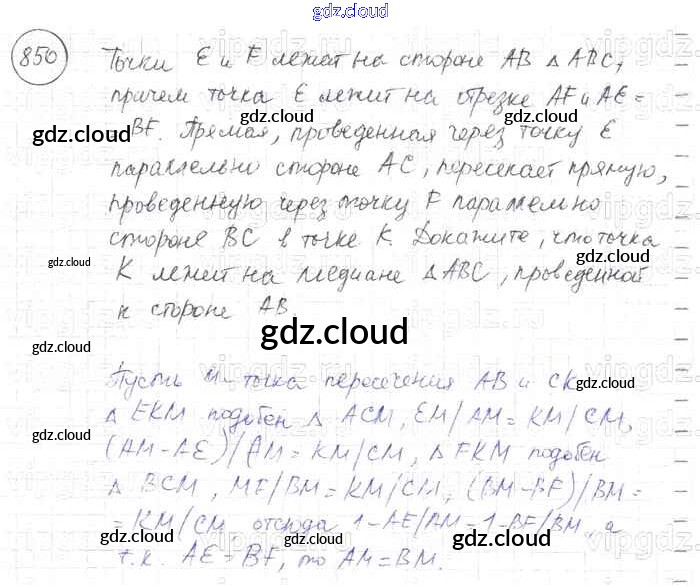 gdz.cloud
850 Точки E и F лежат на стороне AB △ ABC,
причем точка E лежит на отрезке AF и AE =
= BF. Прямая, проведенная через точку E
параллельно стороне AC, пересекает прямую,
проведенную через точку F параллельно
стороне BC в точке K. Докажите, что точка
K лежит на медиане △ ABC, проведенной
к стороне AB
gdz.cloud
Пусть M - точка пересечения AB и CK.
△ EKM подобен △ ACM, EM/AM = KM/CM,
(AM-AE)/AM = KM/CM, △ FKM подобен
△ BCM, MF/BM = KM/CM, (BM-BF)/BM =
= KM/CM отсюда 1-AE/AM = 1-BF/BM, а
т.к. AE = BF, то AM = BM.